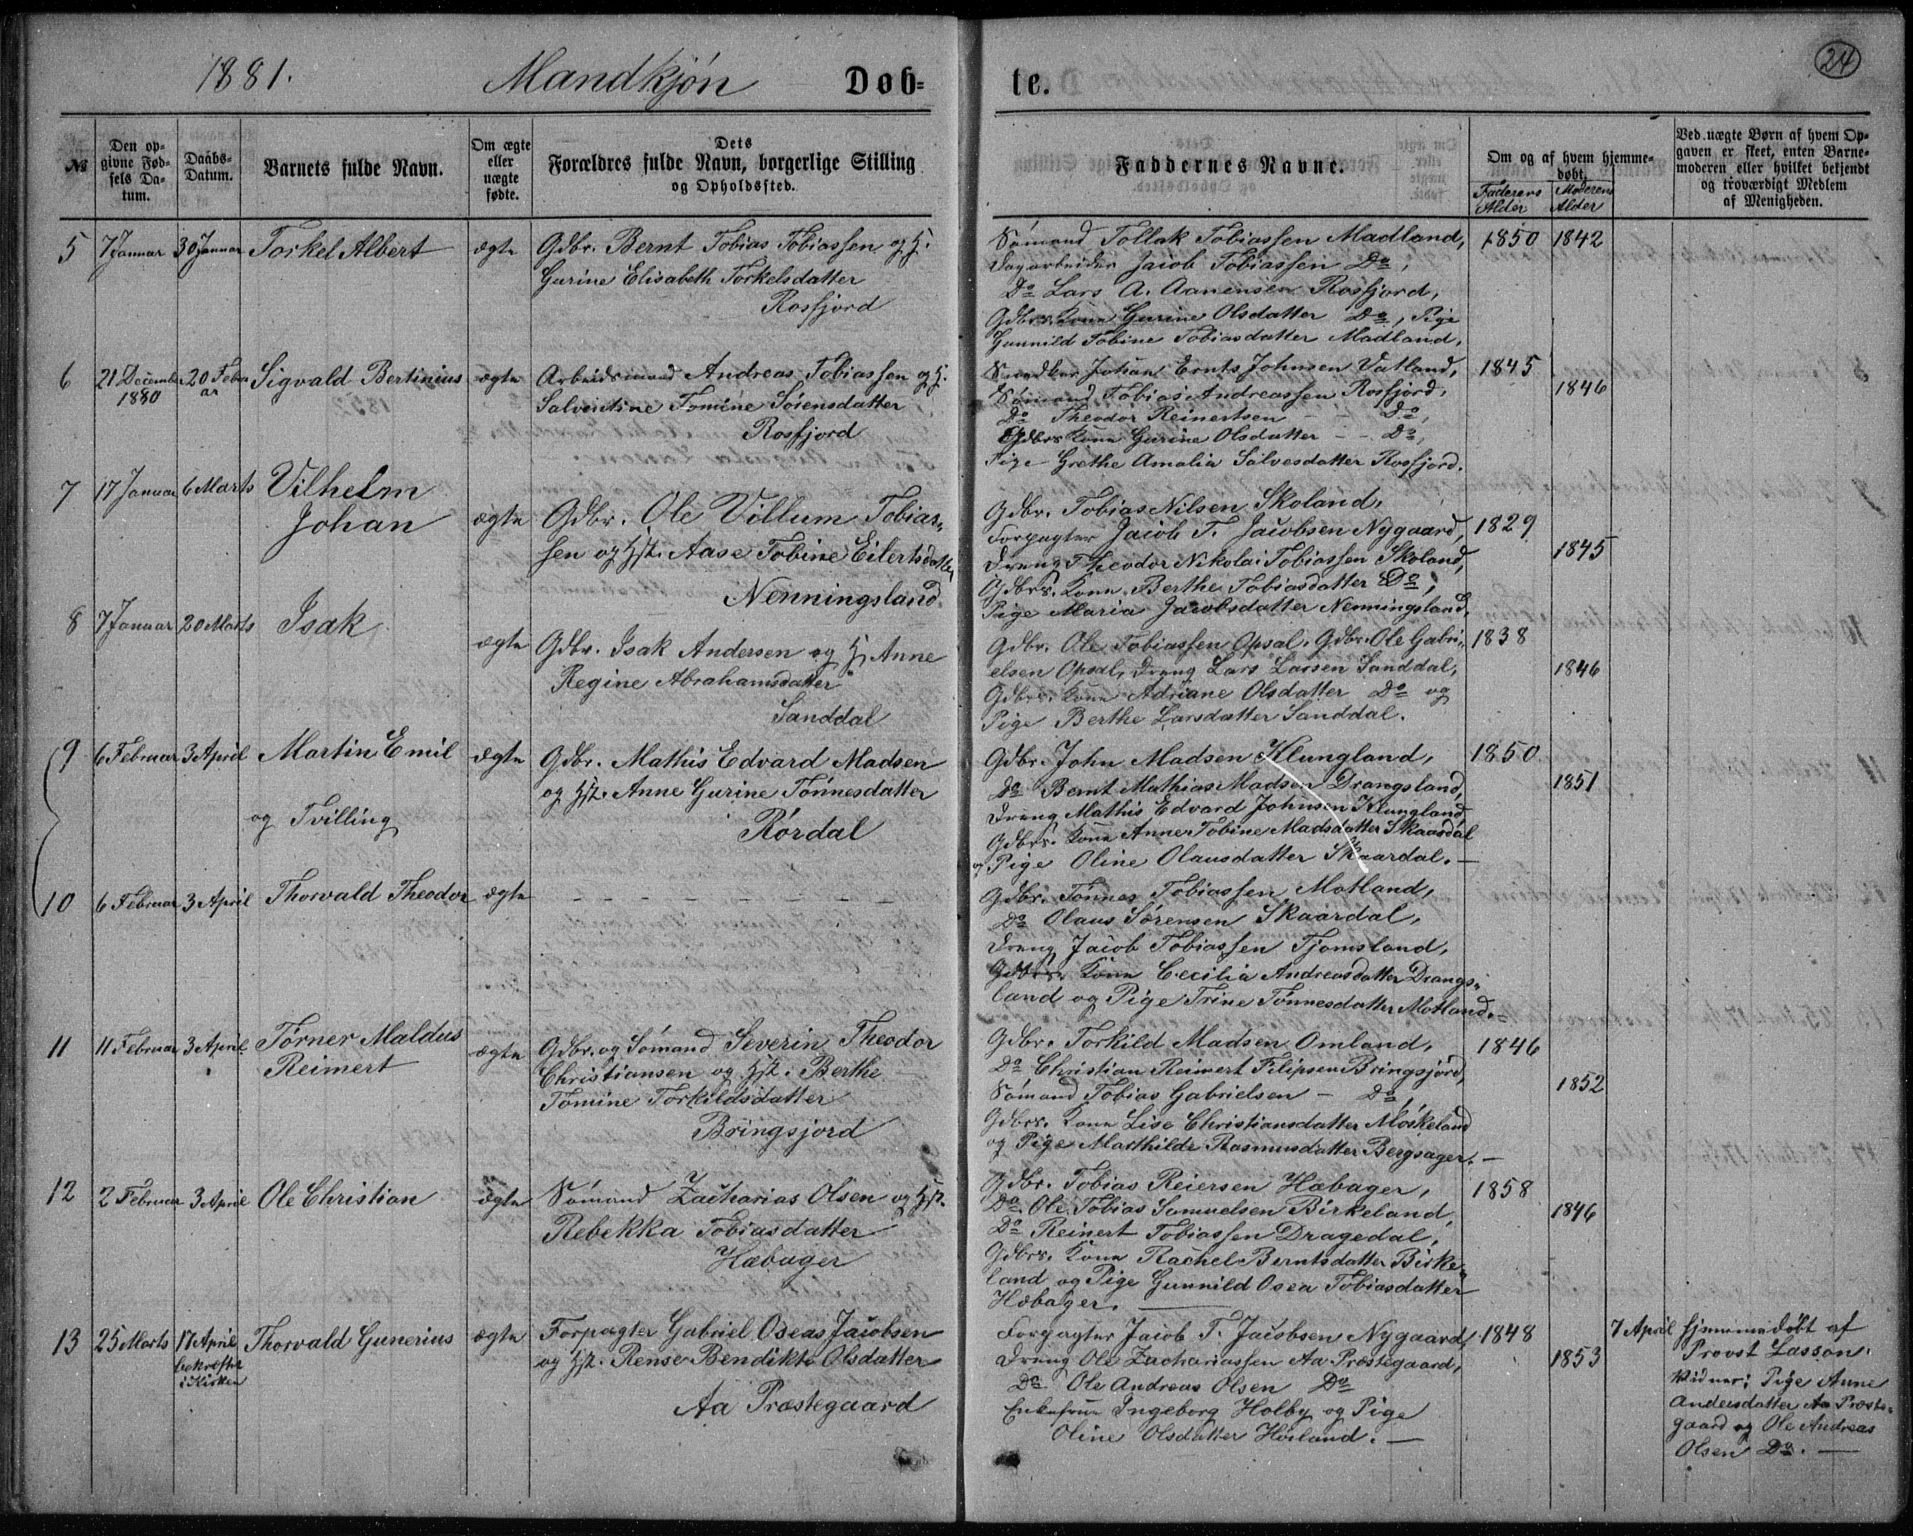 1881.
Mandkjøn
Døb=
te.
24
№
Den op-
givne Fød-
sels Da-
tum.
Daabs-
Datum.
Barnets fulde Navn.
Om ægte
eller
uægte
fødte.
Dets
Forældres fulde Navn, borgerlige Stilling
og Opholdssted.
Faddernes Navne.
Om og af hvem hjemme-
døbt.
Faderens
Alder
Moderens
Alder
Ved uægte Børn af hvem Op-
gaven er skeet, enten Barne-
moderen eller hvilket bekjendt
og troværdigt Medlem
af Menigheden.
5 7 Januar 30 Januar Torkel Albert ægte Gdbr. Bernt Tobias Tobiassen og H.
Gurine Elisabeth Torkelsdatter
Rosfjord
Sømand Tollak Tobiassen Madland, 1850 1842
Dagarbeider Jacob Tobiassen Do,
Do Lars A. Aanensen Rosfjord,
Gdbrs. Kone Gurine Olsdatter Do, Pige
Gunnild Tobine Tobiasdatter Madland.
6 21 December 1880 20 Febru
ar Sigvald Bertinius ægte Arbeidsmand Andreas Tobiassen og H.
Salventine Tomine Sørensdatter
Rosfjord
Snedker Johan Ernts Johnsen Vatland, 1845
Sømand Tobias Andreassen Rosfjord, 1846
Do Theodor Reinertsen - Do,
Gdbrs Kone Gurine Olsdatter - - Do,
Pige Grethe Amalia Salvesdatter Rosfjord.
7 17 Januar 6 Marts Vilhelm
Johan ægte Gdbr. Ole Villum Tobias-
sen og Hst. Aase Tobine Eilertsdatter,
Nenningsland.
Gdbr. Tobias Nilsen Skoland,
Forpagter Jacob T. Jacobsen Nygaard, 1829
Dreng Theodor Nikolai Tobiassen Skoland, 1845
Gdbrs. Kone Berthe Tobiasdatter Do,
Pige Maria Jacobsdatter Nenningsland.
8 7 Januar 20 Marts Isak ægte Gdbr. Isak Andersen og H. Anne
Regine Abrahamsdatter
Sanddal
Gdbr. Ole Tobiassen Opsal, Gdbr. Ole Gabri- 1838
elsen Opsal, Dreng Lars Larsen Sanddal, 1846
Gdbrs. Kone Adriane Olsdatter Do og
Pige Berthe Larsdatter Sanddal.
9 6 Februar 3 April Martin Emil ægte Gdbr. Mathis Edvard Madsen
og Hst. Anne Gurine Tønnesdatter
og Tvilling
Rørdal
Gdbr. John Madsen Klungland, 1850
Do Bernt Mathias Madsen Drangsland, 1851
Dreng Mathis Edvard Johnsen Klungland
Gdbrs. Kone Anne Tobine Madsdatter Skaardal
og Pige Oline Olausdatter Skaardal. -
10 6 Februar 3 April Thorvald Theodor ægte - - - - - - -
Gdbr. Tønnes Tobiassen Motland,
Do Olaus Sørensen Skaardal,
Dreng Jacob Tobiassen Tjomsland,
Gdbrs. Kone Cecilia Andreasdatter Drangs-
land og Pige Trine Tønnesdatter Motland. -
11 11 Februar 3 April Tørner Maldus
Reimert ægte Gdbr. og Sømand Severin Theodor
Christiansen og Hst. Berthe
Tomine Torkildsdatter
Bringsjord
Gdbr. Torkild Madsen Omland, 1846
Do Christian Reimert Filipsen Bringsjord, 1852
Sømand Tobias Gabrielsen - Do,
Gdbrs. Kone Lise Christiansdatter Møskeland
og Pige Marthilde Rasmusdatter Bergsager. -
12 2 Februar 3 April Ole Christian ægte Sømand Zacharias Olsen og Hst.
Rebekka Tobiasdatter
Hæbager
Gdbr. Tobias Reiersen Hæbager, 1858
Do Ole Tobias Samuelsen Birkeland, 1846
Do Reinert Tobiassen Dragedal,
Gdbrs. Kone Rachel Berntsdatter Birke-
land og Pige Gunnild Osea Tobiasdatter
Hæbager.
13 25 Marts 17 April
bekræftet
i Kirken Thorvald Gunerius ægte Forpagter Gabriel Oseas Jacobsen
og Hst. Rense Bendikte Olsdatter
Aa Præstegaard
Forpagter Jacob T. Jacobsen Nygaard, 1848
Dreng Ole Zachariassen Aa Præstegaard, 1853
Do Ole Andreas Olsen Do
Enkefrue Ingeborg Holby og Pige
Oline Olsdatter Høiland. -
7 April hjemmedøbt af
Provst Lassen.
Vidner: Pige Anne
Andersdatter Aa Præste-
gaard og Ole Andreas
Olsen Do. -